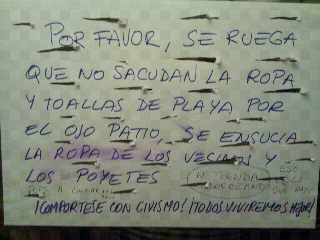 POR FAVOR, SE RUEGA
QUE NO SACUDAN LA ROPA
Y TOALLAS DE PLAYA POR
EL OJO PATIO, SE ENSUCIA
LA ROPA DE LOS VECINOS Y
LOS POYETES
N TIENDA
¡COMPORTESE CON CIVISMO! ¡TODOS VIVIREMOS MEJOR!